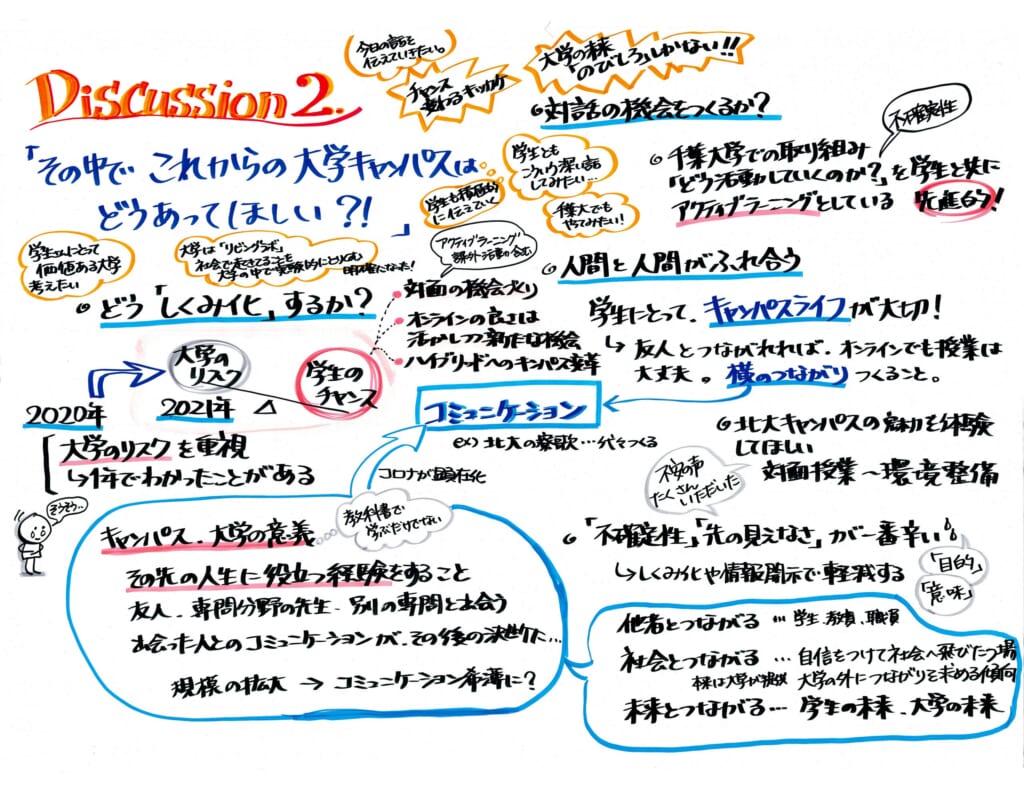 Discussion 2..
今日の話を
伝えていきたい。
チャンス
変わるキッカケ
大学の未来
「のびしろ」しかない!!
「その中で これからの 大学キャンパスは
どうあってほしい?!」
学生とも
こういう深い話
してみたい…
学生も積極的
に伝えていく
千葉大でも
やってみたい!
学生にとって
価値ある大学
考えたい
大学は「リビングラボ」
社会で起きてることを
大学の中で実験的にとりくむ
明確になった!
アクティブラーニング
課外活動含む
どう「しくみ化」するか?
・対面の機会
・オンラインの良さは
活かしつつ新たな機会
・ハイブリッドへのキャンパス変革
大学の
リスク
学生の
チャンス
2020年
2021年
大学のリスクを重視
↳1年でわかったことがある
そうそう…
コミュニケーション
ex) 北大の寮歌…代々つくる
コロナが顕在化
キャンパス、大学の意義
教科書で
学ぶだけでない
その先の人生に役立つ経験をすること
友人、専門分野の先生、別の専門と出会う
出会った人とのコミュニケーションが、その後の決断に…
規模の拡大 → コミュニケーション希薄に?
対話の機会をつくるか?
不確実性
千葉大学での取り組み
「どう活動していくのか?」を学生と共に
アクティブラーニングとしている 先進的!
人間と人間がふれ合う
学生にとって、キャンパスライフが大切!
↳ 友人とつながれれば、オンラインでも授業は
大丈夫。横のつながりつくること。
北大キャンパスの魅力を体験
してほしい
対面授業〜環境整備
不安の声
たくさん
いただいた
「不確定性」「先の見えなさ」が一番辛い
↳しくみ化や情報開示で軽減する
「目的」
「意味」
他者とつながる … 学生、教員、職員
社会とつながる … 自信をつけて社会へ飛びたつ場
大学の外につながりを求める傾向
未来とつながる… 学生の未来、大学の未来